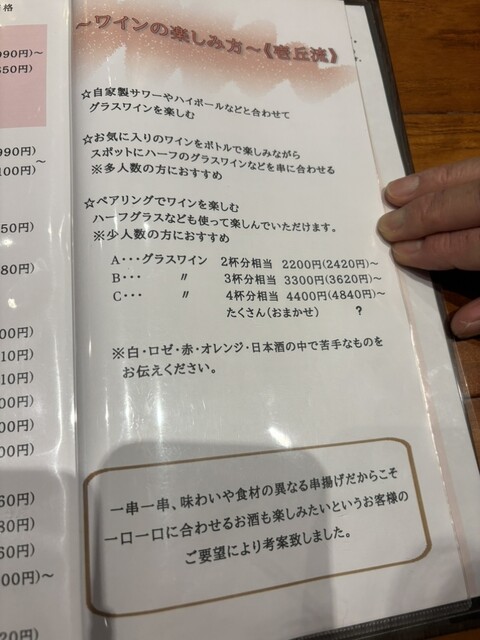 格
990円)～
650円)
990円)
100円)～
50円)
80円)
00円)
10円)
10円)
00円)
00円)
00円)
60円)
80円)
60円)
00円)～
20円)
～ワインの楽しみ方～《壱丘流》
☆自家製サワーやハイボールなどと合わせて
グラスワインを楽しむ
☆お気に入りのワインをボトルで楽しみながら
スポットにハーフのグラスワインなどを串に合わせる
※多人数の方におすすめ
☆ペアリングでワインを楽しむ
ハーフグラスなども使って楽しんでいただけます。
※少人数の方におすすめ
A・・・グラスワイン 2杯分相当 2200円(2420円)～
B・・・ 〃 3杯分相当 3300円(3620円)～
C・・・ 〃 4杯分相当 4400円(4840円)～
たくさん(おまかせ) ?
※白・ロゼ・赤・オレンジ・日本酒の中で苦手なものを
お伝えください。
一串一串、味わいや食材の異なる串揚げだからこそ
一口一口に合わせるお酒も楽しみたいというお客様の
ご要望により考案致しました。